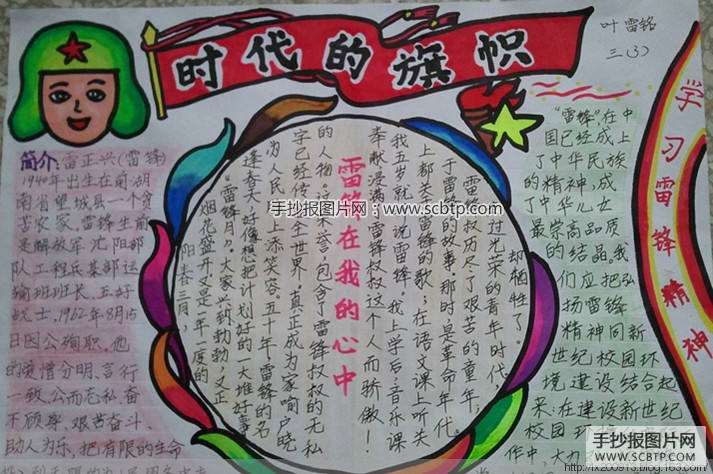 时代的旗帜
叶雷铭
三(3)
简介:雷正兴(雷锋)
1940年出生在前湖
南省望城县一个贫
苦农家,雷锋生前
是解放军沈阳部
队工程兵某部运
输班班长、五好
战士,1962年8月15
日因公殉职,他
的爱憎分明、言行
一致、公而忘私、奋
不顾身、艰苦奋斗、
助人为乐,把有限的生命
雷锋在我的心中
阳春三月,
烟花盛开又是一年一度的
“雷锋月”,大家兴致勃勃,又正
逢春天,好像想把计划好的一大堆好事
为人民
上添笑容。五十年,雷锋的名
字已经传
全世界,真正成为家喻户晓
的人物。这
荣誉,包含了雷锋叔叔的无私
奉献浸满
雷锋叔叔这个人而骄傲!
我五岁就
说雷锋,我上学后,音乐课
上都关于雷锋的歌;在语文课上听关
于雷锋的故事。那时是革命年代,
雷锋叔叔历尽了艰苦的童年,
过光荣的青年时代,
却牺牲了。
“雷锋”在中
国已经成上
了中华民族
的精神,成
了中华儿女
最崇高品质
的结晶。我
们应把弘
扬雷锋
精神同新
世纪校园环
境建设结合起
来:在建设新世纪
校园环
中,大力
学习雷锋精神
手抄报图片网:www.scbtp.com
手抄报图片网
WWW.SCBTP.COM